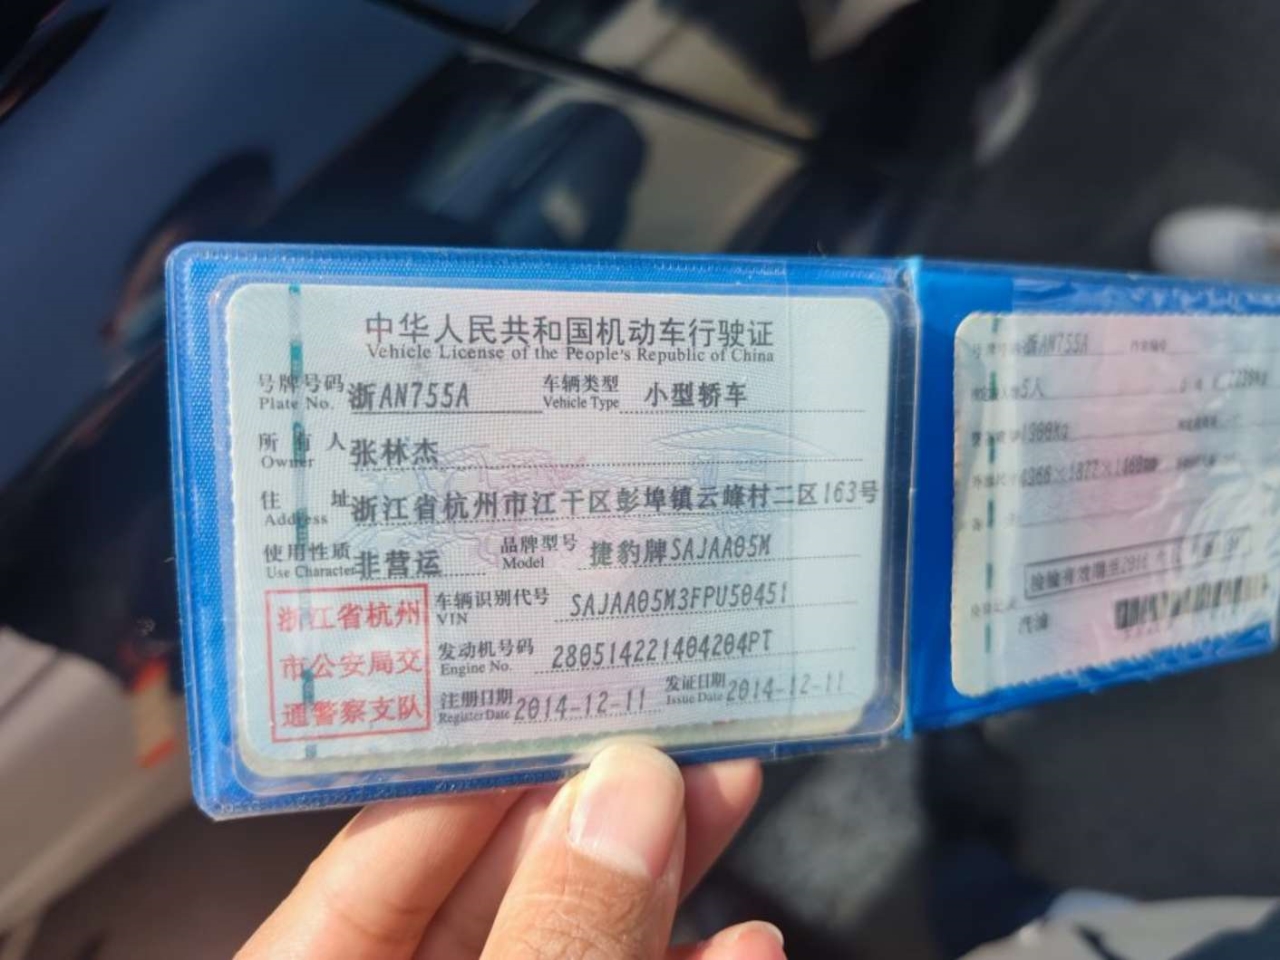 中华人民共和国机动车行驶证
Vehicle License of the People's Republic of China
号牌号码 浙AN755A 车辆类型 小型轿车
Plate No. Vehicle Type
所有人 张林杰
Owner
住址 浙江省杭州市江干区彭埠镇云峰村二区163号
Address
使用性质 非营运 品牌型号 捷豹牌SAJAA05M
Use Character Model
浙江省杭州
市公安局交
通警察支队
车辆识别代号 SAJAA05M3FPU50451
VIN
发动机号码 280514221404204PT
Engine No.
注册日期 2014-12-11 发证日期 2014-12-11
Register Date Issue Date
浙AN755A
5人
汽油